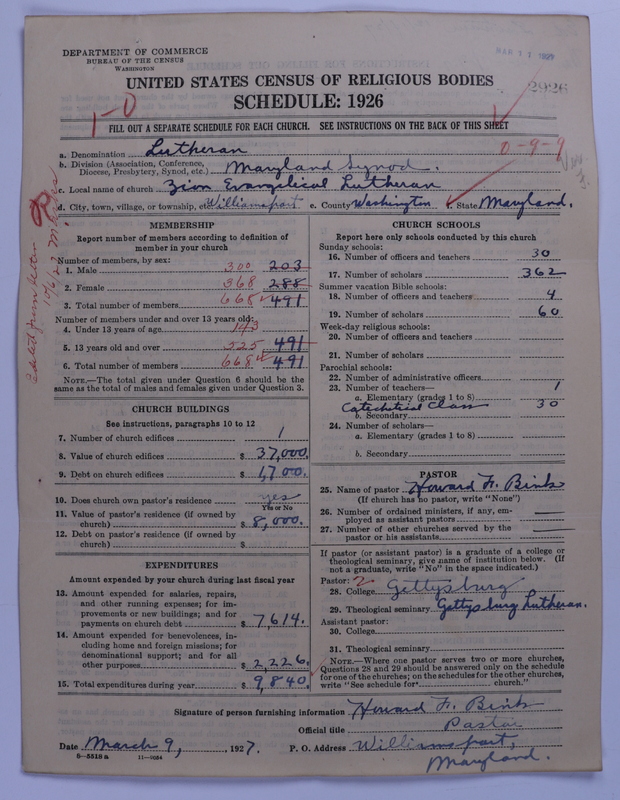 DEPARTMENT OF COMMERCE
BUREAU OF THE CENSUS
WASHINGTON
MAR 11 1927
2926
UNITED STATES CENSUS OF RELIGIOUS BODIES
SCHEDULE: 1926
1-0
FILL OUT A SEPARATE SCHEDULE FOR EACH CHURCH. SEE INSTRUCTIONS ON THE BACK OF THIS SHEET
0-9-9
a. Denomination Lutheran
b. Division (Association, Conference, Diocese, Presbytery, Synod, etc.) Maryland Synod.
c. Local name of church Zion Evangelical Lutheran
d. City, town, village, or township, etc. Williamsport e. County Washington f. State Maryland.
MEMBERSHIP
Report number of members according to definition of member in your church
Number of members, by sex:
1. Male 300 203
2. Female 368 288
3. Total number of members 668 491
Number of members under and over 13 years old:
4. Under 13 years of age 143
5. 13 years old and over 525 491
6. Total number of members 668 491
NOTE.—The total given under Question 6 should be the same as the total of males and females given under Question 3.
CHURCH BUILDINGS
See instructions, paragraphs 10 to 12
7. Number of church edifices 1
8. Value of church edifices $ 37,000.
9. Debt on church edifices $ 1,700.
10. Does church own pastor's residence yes
Yes or No
11. Value of pastor's residence (if owned by church) $ 8,000.
12. Debt on pastor's residence (if owned by church) $
EXPENDITURES
Amount expended by your church during last fiscal year
13. Amount expended for salaries, repairs, and other running expenses; for improvements or new buildings; and for payments on church debt $ 7,614.
14. Amount expended for benevolences, including home and foreign missions; for denominational support; and for all other purposes $ 2,226.
15. Total expenditures during year $ 9,840.
CHURCH SCHOOLS
Report here only schools conducted by this church
Sunday schools:
16. Number of officers and teachers 30
17. Number of scholars 362
Summer vacation Bible schools:
18. Number of officers and teachers 4
19. Number of scholars 60
Week-day religious schools:
20. Number of officers and teachers
21. Number of scholars
Parochial schools:
22. Number of administrative officers
23. Number of teachers— 1
a. Elementary (grades 1 to 8)
Catechetical Class 30
b. Secondary
24. Number of scholars—
a. Elementary (grades 1 to 8)
b. Secondary
PASTOR
25. Name of pastor Howard F. Bink
(If church has no pastor, write "None")
26. Number of ordained ministers, if any, employed as assistant pastors
27. Number of other churches served by the pastor or his assistants
If pastor (or assistant pastor) is a graduate of a college or theological seminary, give name of institution below. (If not a graduate, write "No" in the space indicated.)
Pastor: 2
28. College Gettysburg
29. Theological seminary Gettysburg Lutheran.
Assistant pastor:
30. College
31. Theological seminary
NOTE.—Where one pastor serves two or more churches, Questions 28 and 29 should be answered only on the schedule for one of the churches; on the schedules for the other churches, write "See schedule for church."
Signature of person furnishing information Howard F. Bink
Official title Pastor
Date March 9, 1927. P. O. Address Williamsport,
Maryland.
6—5518 a 11—9054